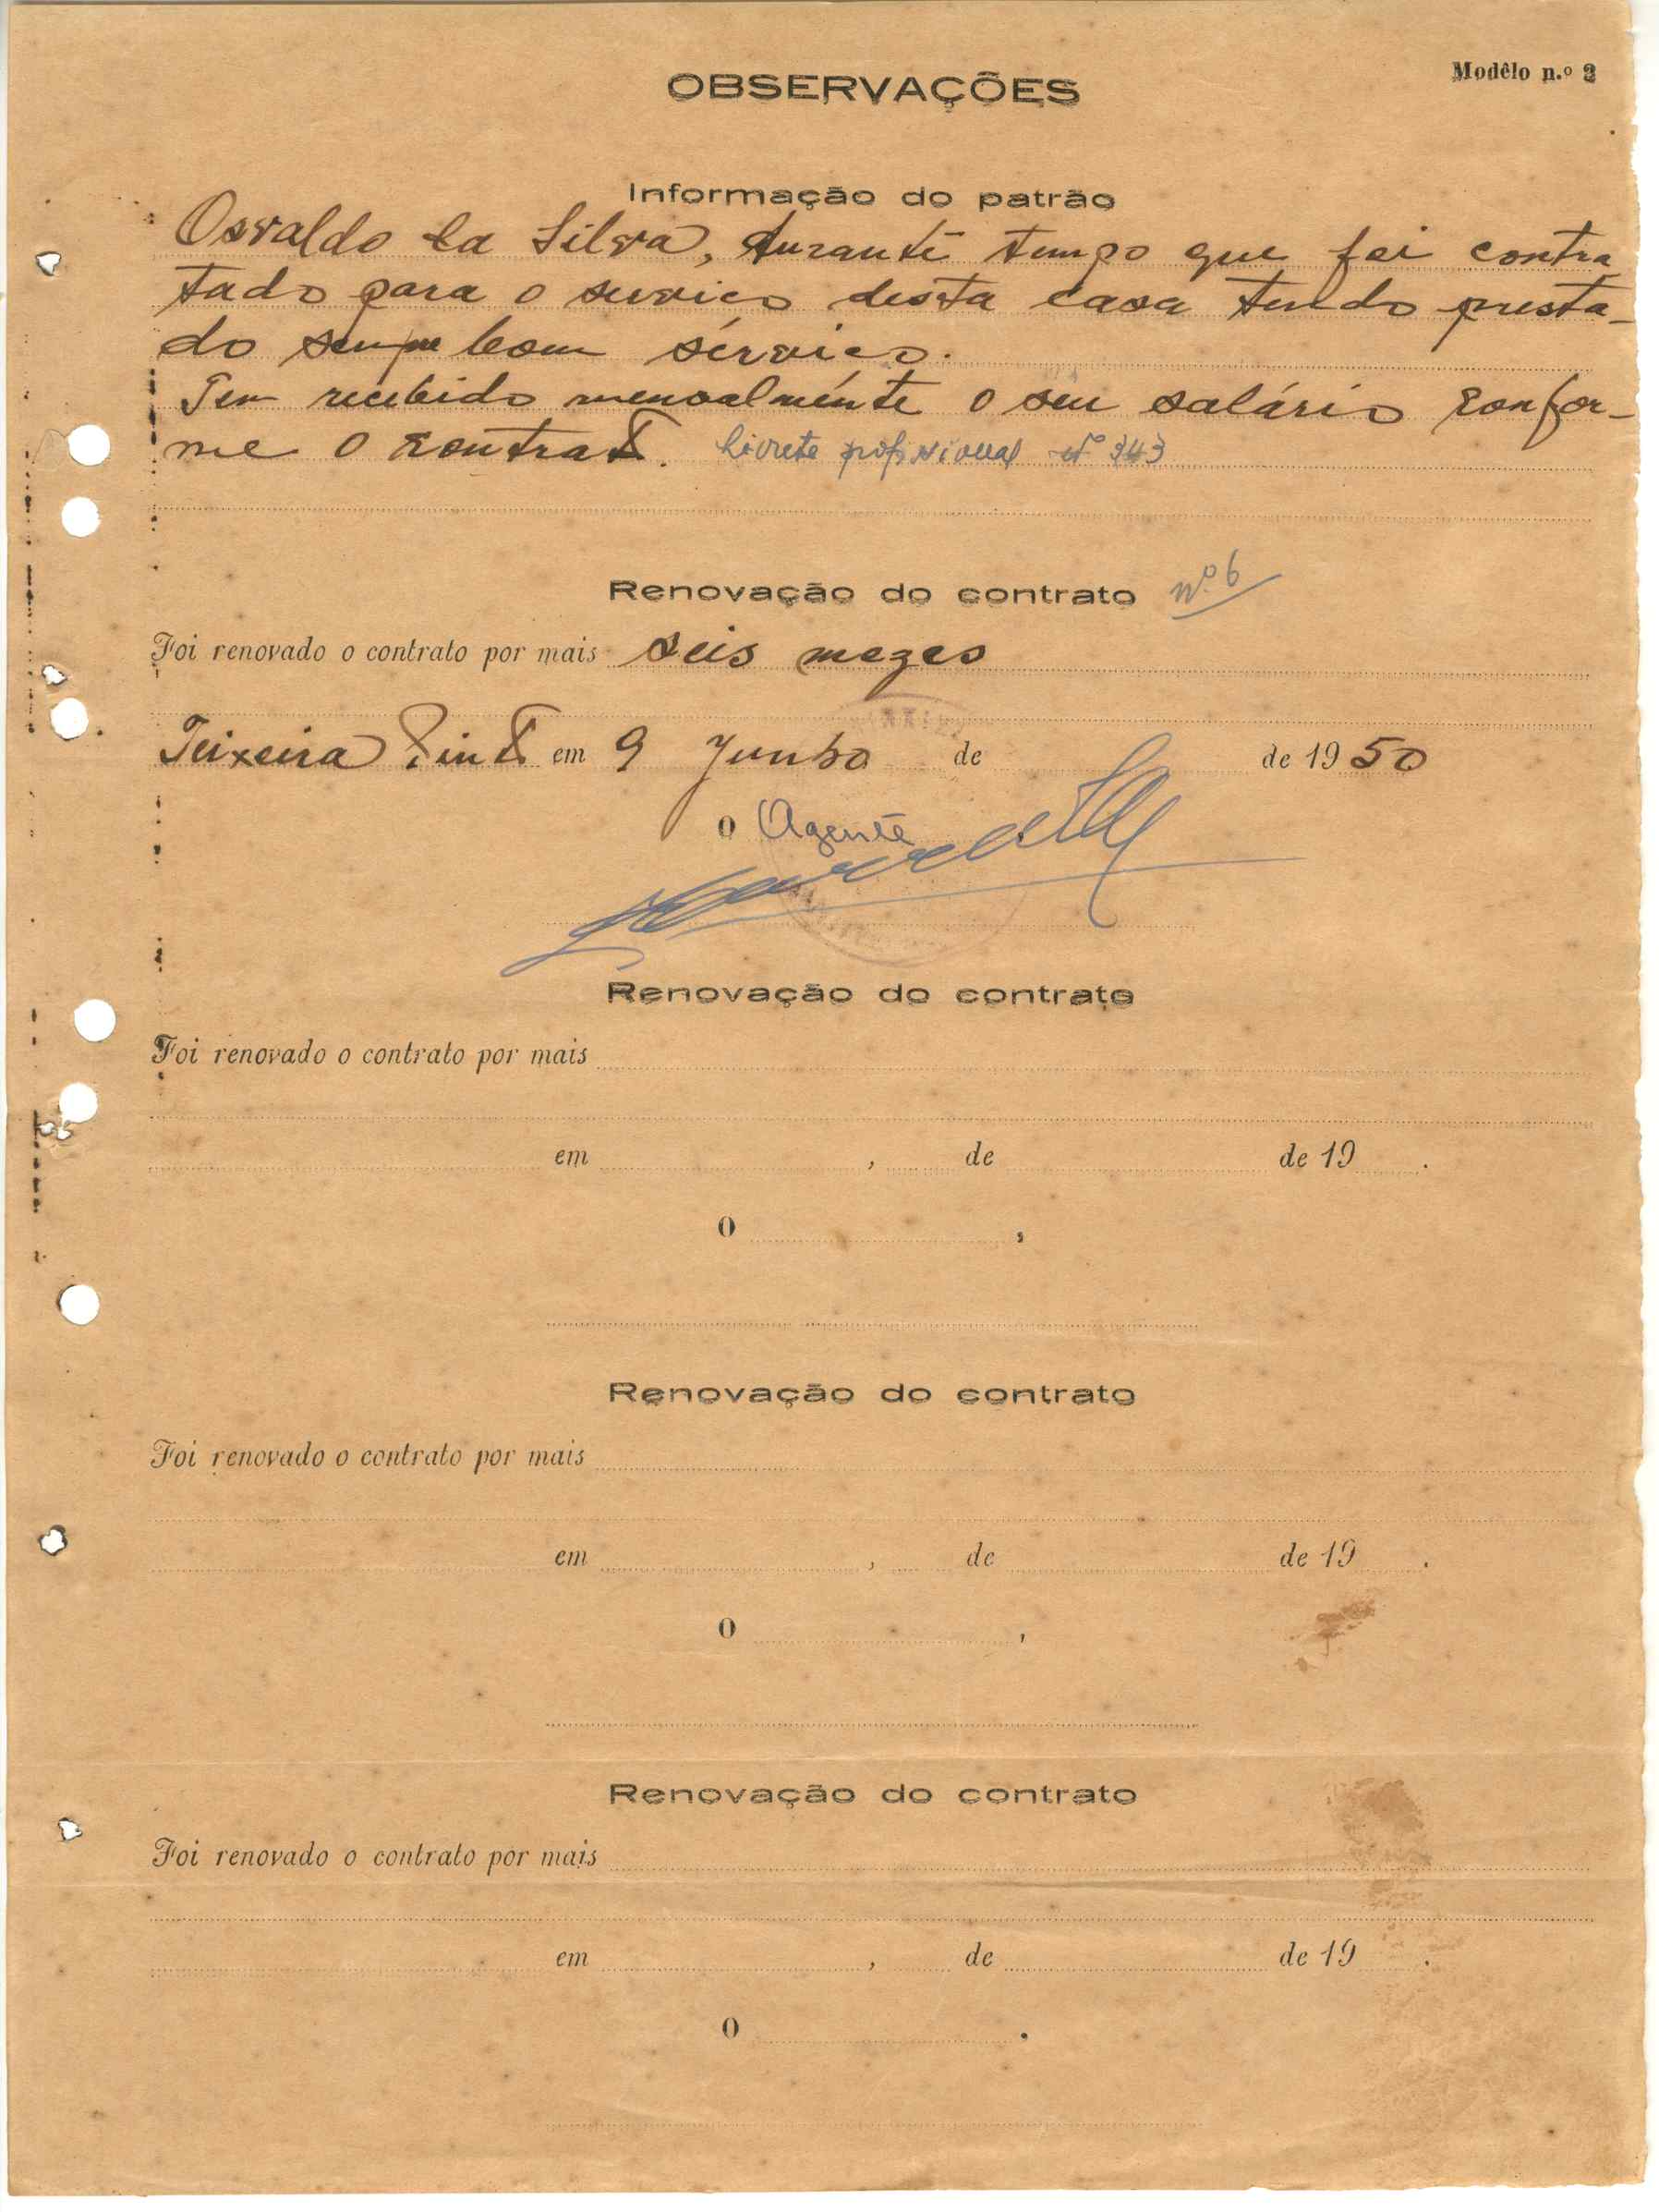 OBSERVAÇÕES
Modêlo n.º 2
Informação do patrão
Osvaldo da Silva, durante tempo que foi contra
tado para o serviço desta casa tendo presta-
do sempre bom sérviço.
Tem recebido mensalménte o seu salário confor-
me o contrato. Livrete profissional Nº 343
Renovação do contrato nº 6
Foi renovado o contrato por mais seis mezes
Teixeira Pinto em 9 Junho de de 1950
O Agente
Renovação do contrato
Foi renovado o contrato por mais
em , de de 19 .
O ,
Renovação do contrato
Foi renovado o contrato por mais
em , de de 19 .
O ,
Renovação do contrato
Foi renovado o contrato por mais
em , de de 19 .
O .